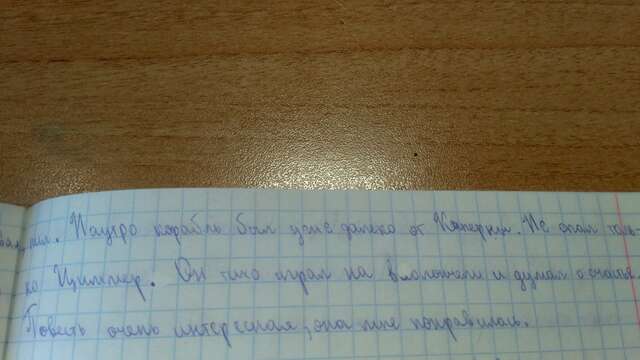 пил. Наутро корабль был уже далеко от Каперны. Не спал толь-
ко Циммер. Он тихо играл на виолончели и думал о счастье.
Повесть очень интересная, она мне понравилась.